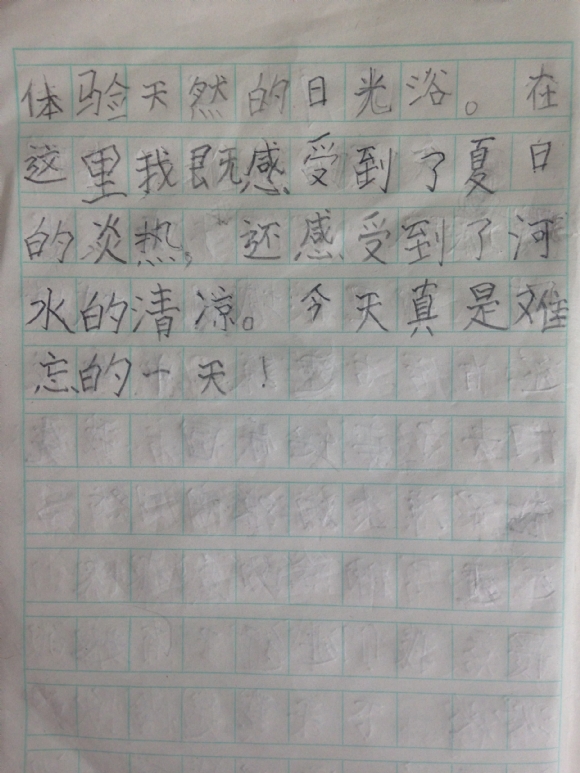 体验天然的日光浴。在
这里我既感受到了夏日
的炎热，还感受到了河
水的清凉。今天真是难
忘的一天！